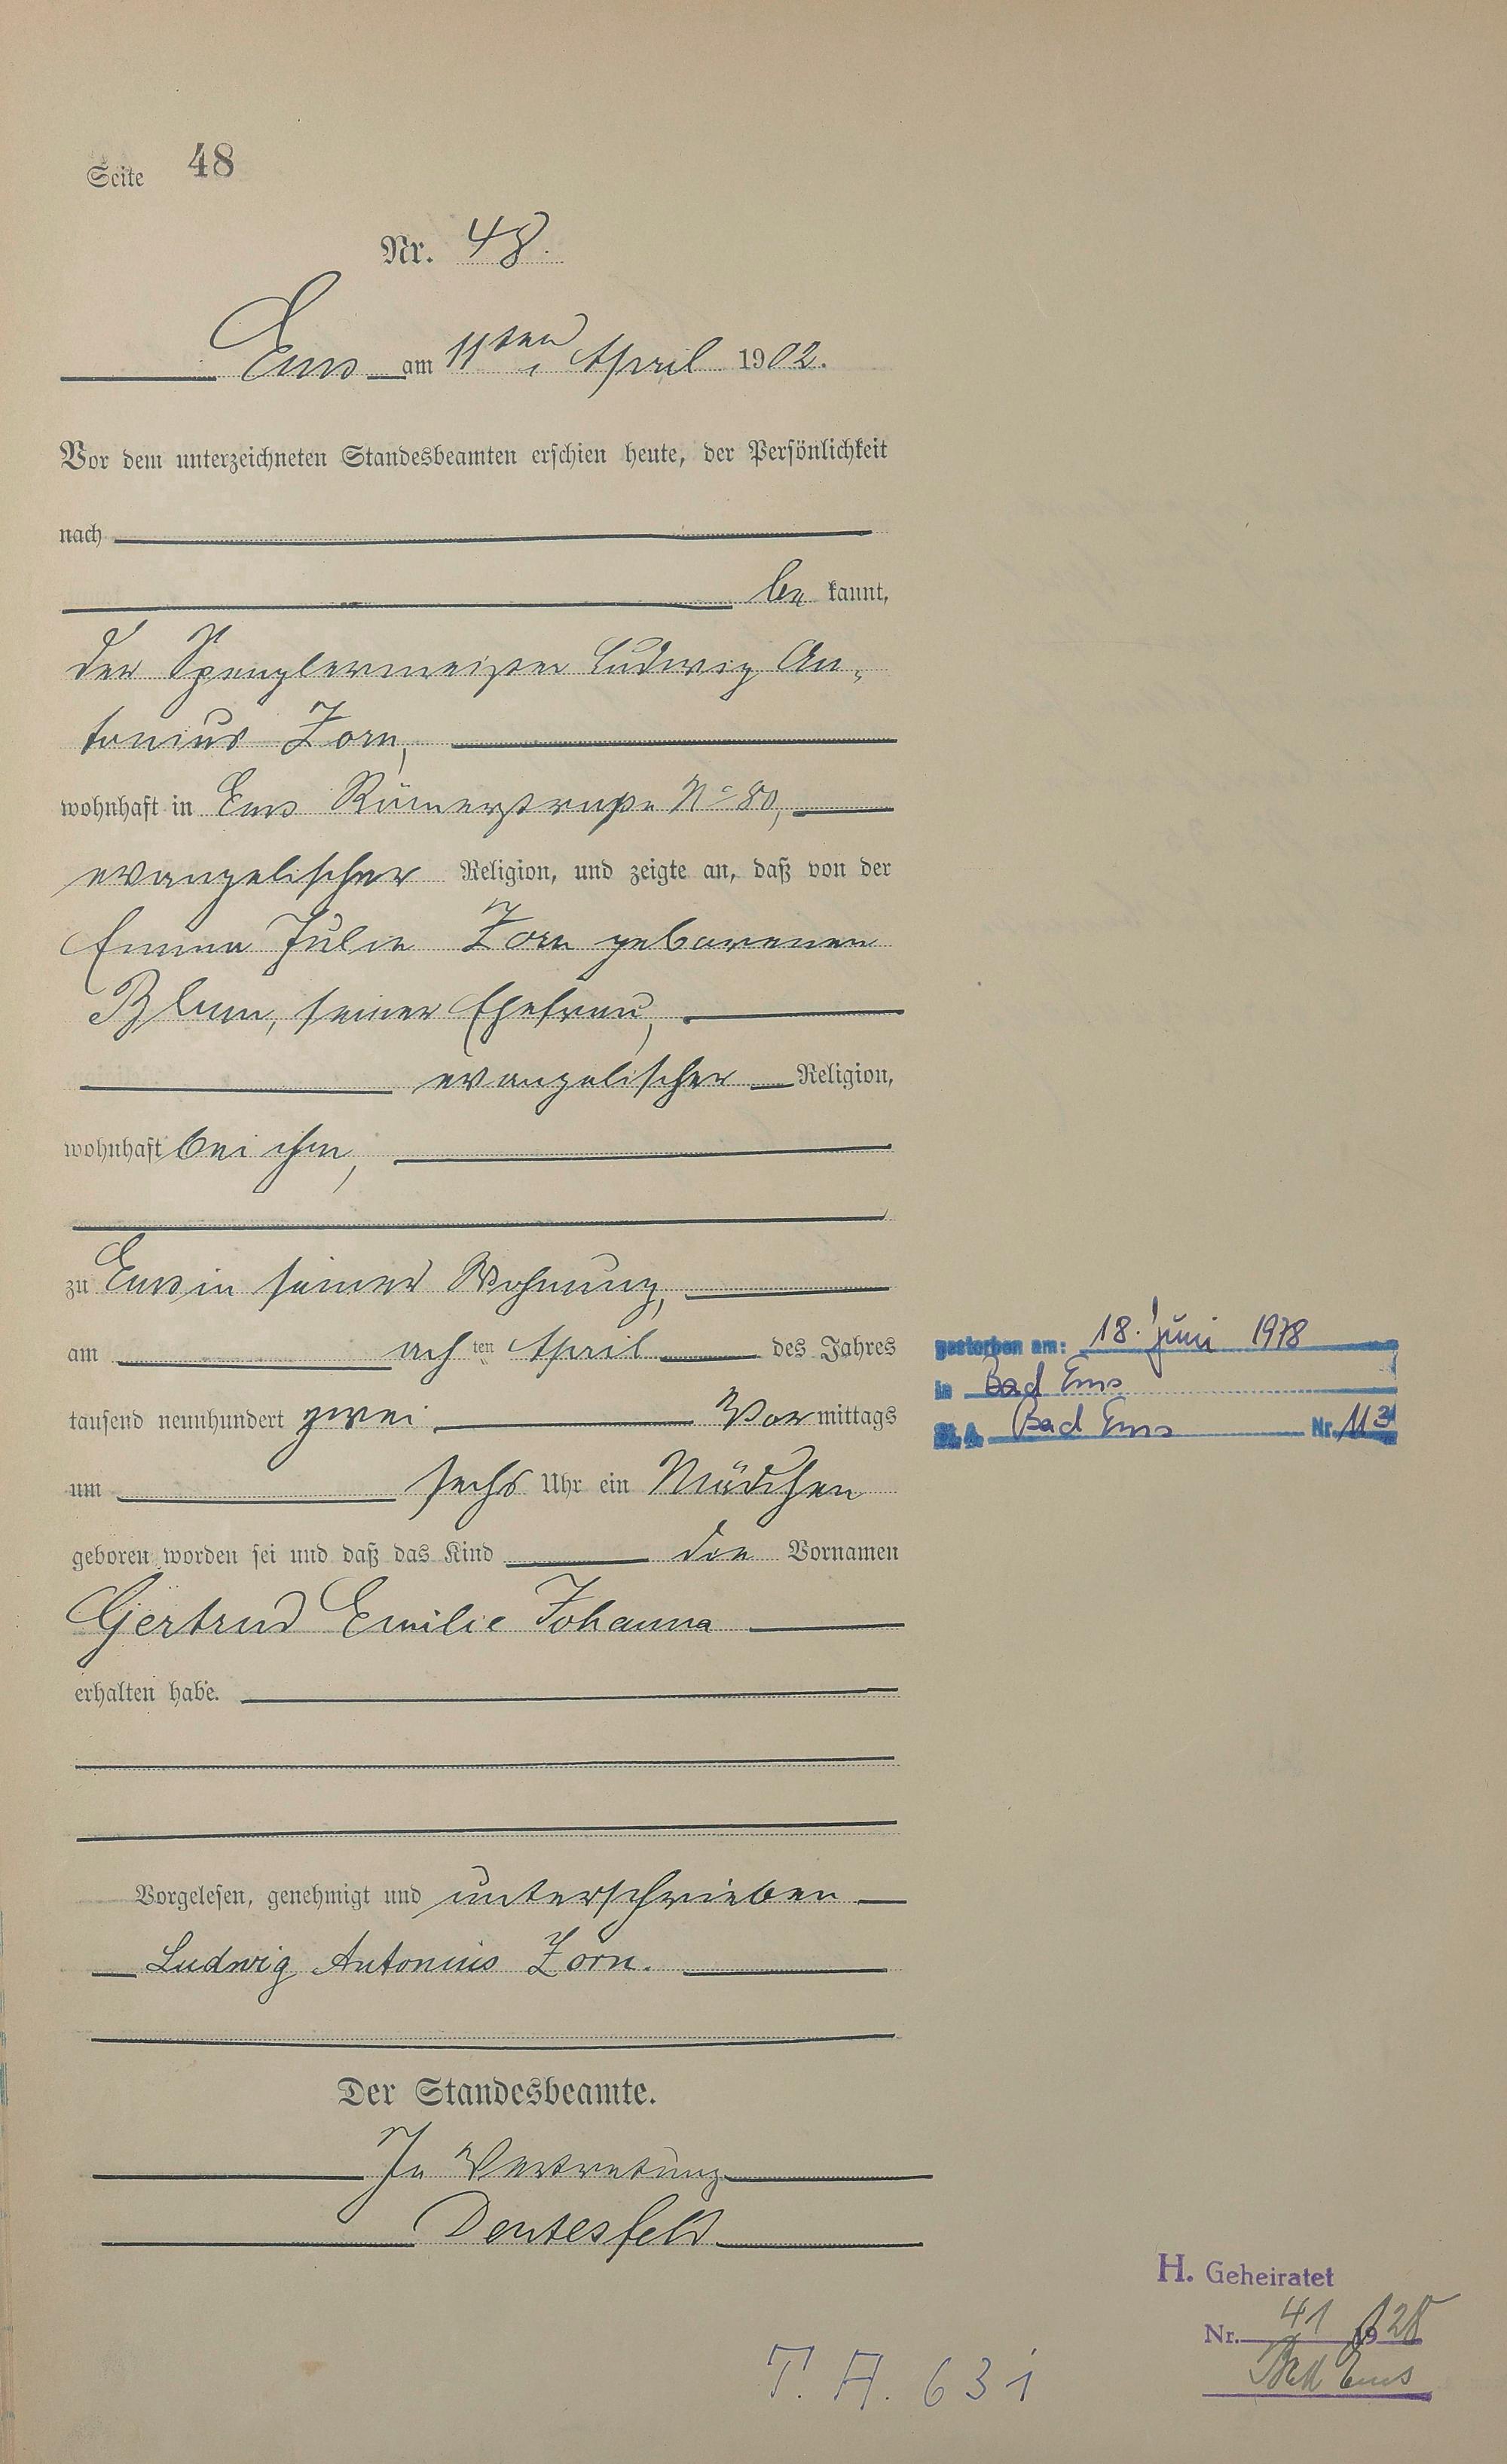 Seite 48
Nr. 48.
Ems am 11ten April 1902.
Vor dem unterzeichneten Standesbeamten erschien heute, der Persönlichkeit
nach
be kannt,
der Spenglermeister Ludwig An-
tonius Zorn,
wohnhaft in Ems Römerstraße No 80,
evangelischer Religion, und zeigte an, daß von der
Emma Julie Zorn geborenen
Blum, seiner Ehefrau,
evangelischer Religion,
wohnhaft bei ihm,
zu Ems in seiner Wohnung,
am achten April des Jahres
tausend neunhundert zwei Vormittags
um sechs Uhr ein Mädchen
geboren worden sei und daß das Kind die Vornamen
Gertrud Emilie Johanna
erhalten habe.
Vorgelesen, genehmigt und unterschrieben
Ludwig Antonius Zorn.
Der Standesbeamte.
In Vertretung
Dentesfeld
gestorben am: 18. Juni 1978
in Bad Ems
St. A. Bad Ems Nr. 113
H. Geheiratet
Nr. 41 1928
Bad Ems
T. A. 631